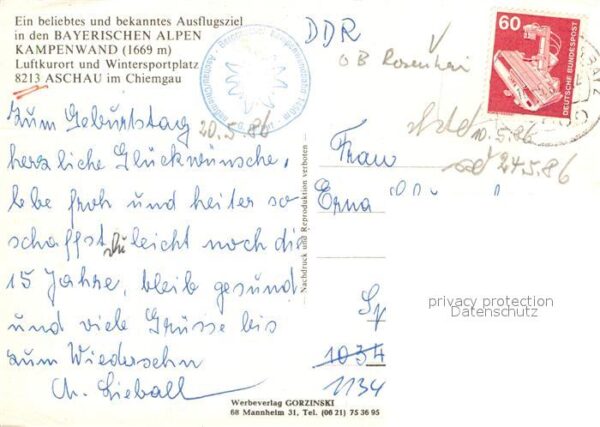 Ein beliebtes und bekanntes Ausflugsziel
in den BAYERISCHEN ALPEN
KAMPENWAND (1669 m)
Luftkurort und Wintersportplatz
8213 ASCHAU im Chiemgau
Zum Geburtstag 20.5.86
herzliche Glückwünsche,
lebe froh und heiter so
schaffst Du leicht noch die
15 Jahre, bleib gesund
und viele Grüsse bis
zum Wiedersehn
Ch. Lieball
Werbeverlag GORZINSKI
68 Mannheim 31, Tel. (06 21) 75 36 95
Nachdruck und Reproduktion verboten
DDR
OB Rosenheim
60
DEUTSCHE BUNDESPOST
10.5.86
24.5.86
Frau
Erna
privacy protection
Datenschutz
1034
1134